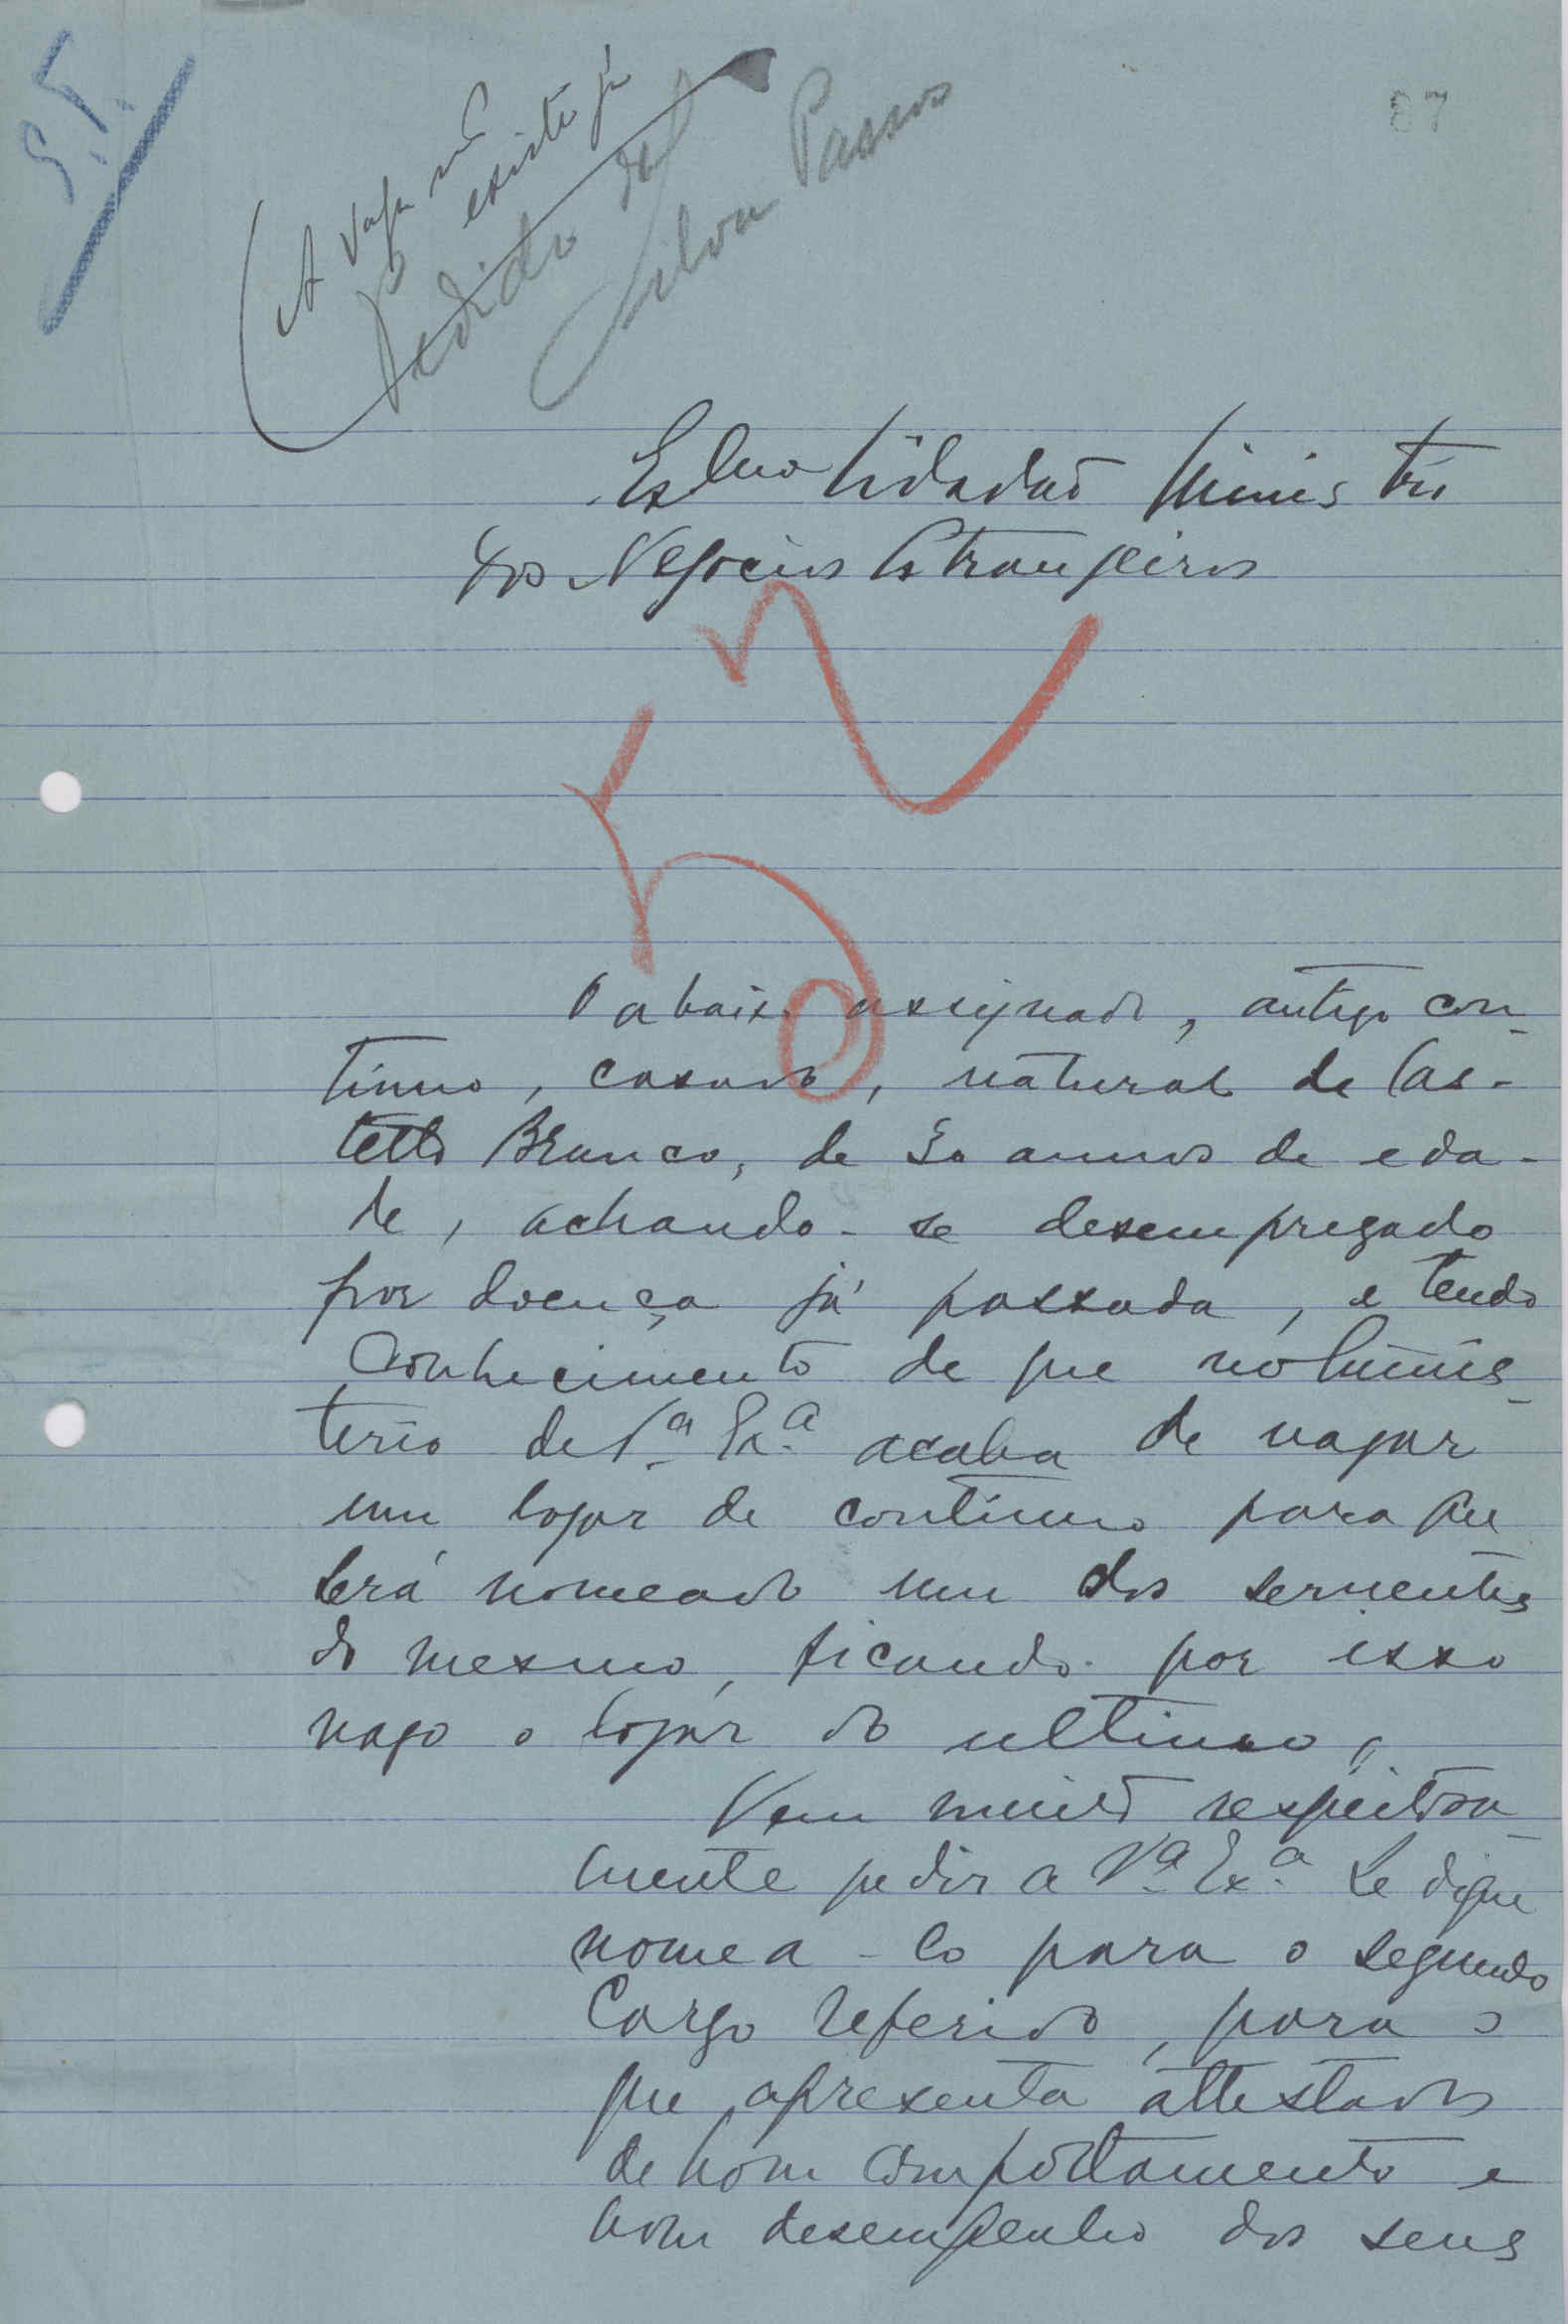 S. T.
A vaga não
existe já
Pedido de
Silva Passos
87
Exmo Cidadão Ministro
dos Negocios Estrangeiros
O abaixo assignado, antigo con-
tinuo, casado, natural de Cas-
tello Branco, de 30 annos de eda-
de, achando-se desempregado
por doença já passada, e tendo
conhecimento de que no Minis-
terio de Vª Exª acaba de vagar
um logar de continuo para que
será nomeado um dos serventes
do mesmo, ficando por isso
vago o logar do ultimo,
Vem muito respeitosa-
mente pedir a Vª Exª se digne
nomea-lo para o segundo
Cargo referido, para o
que apresenta attestados
de bom comportamento e
bom desempenho dos seus